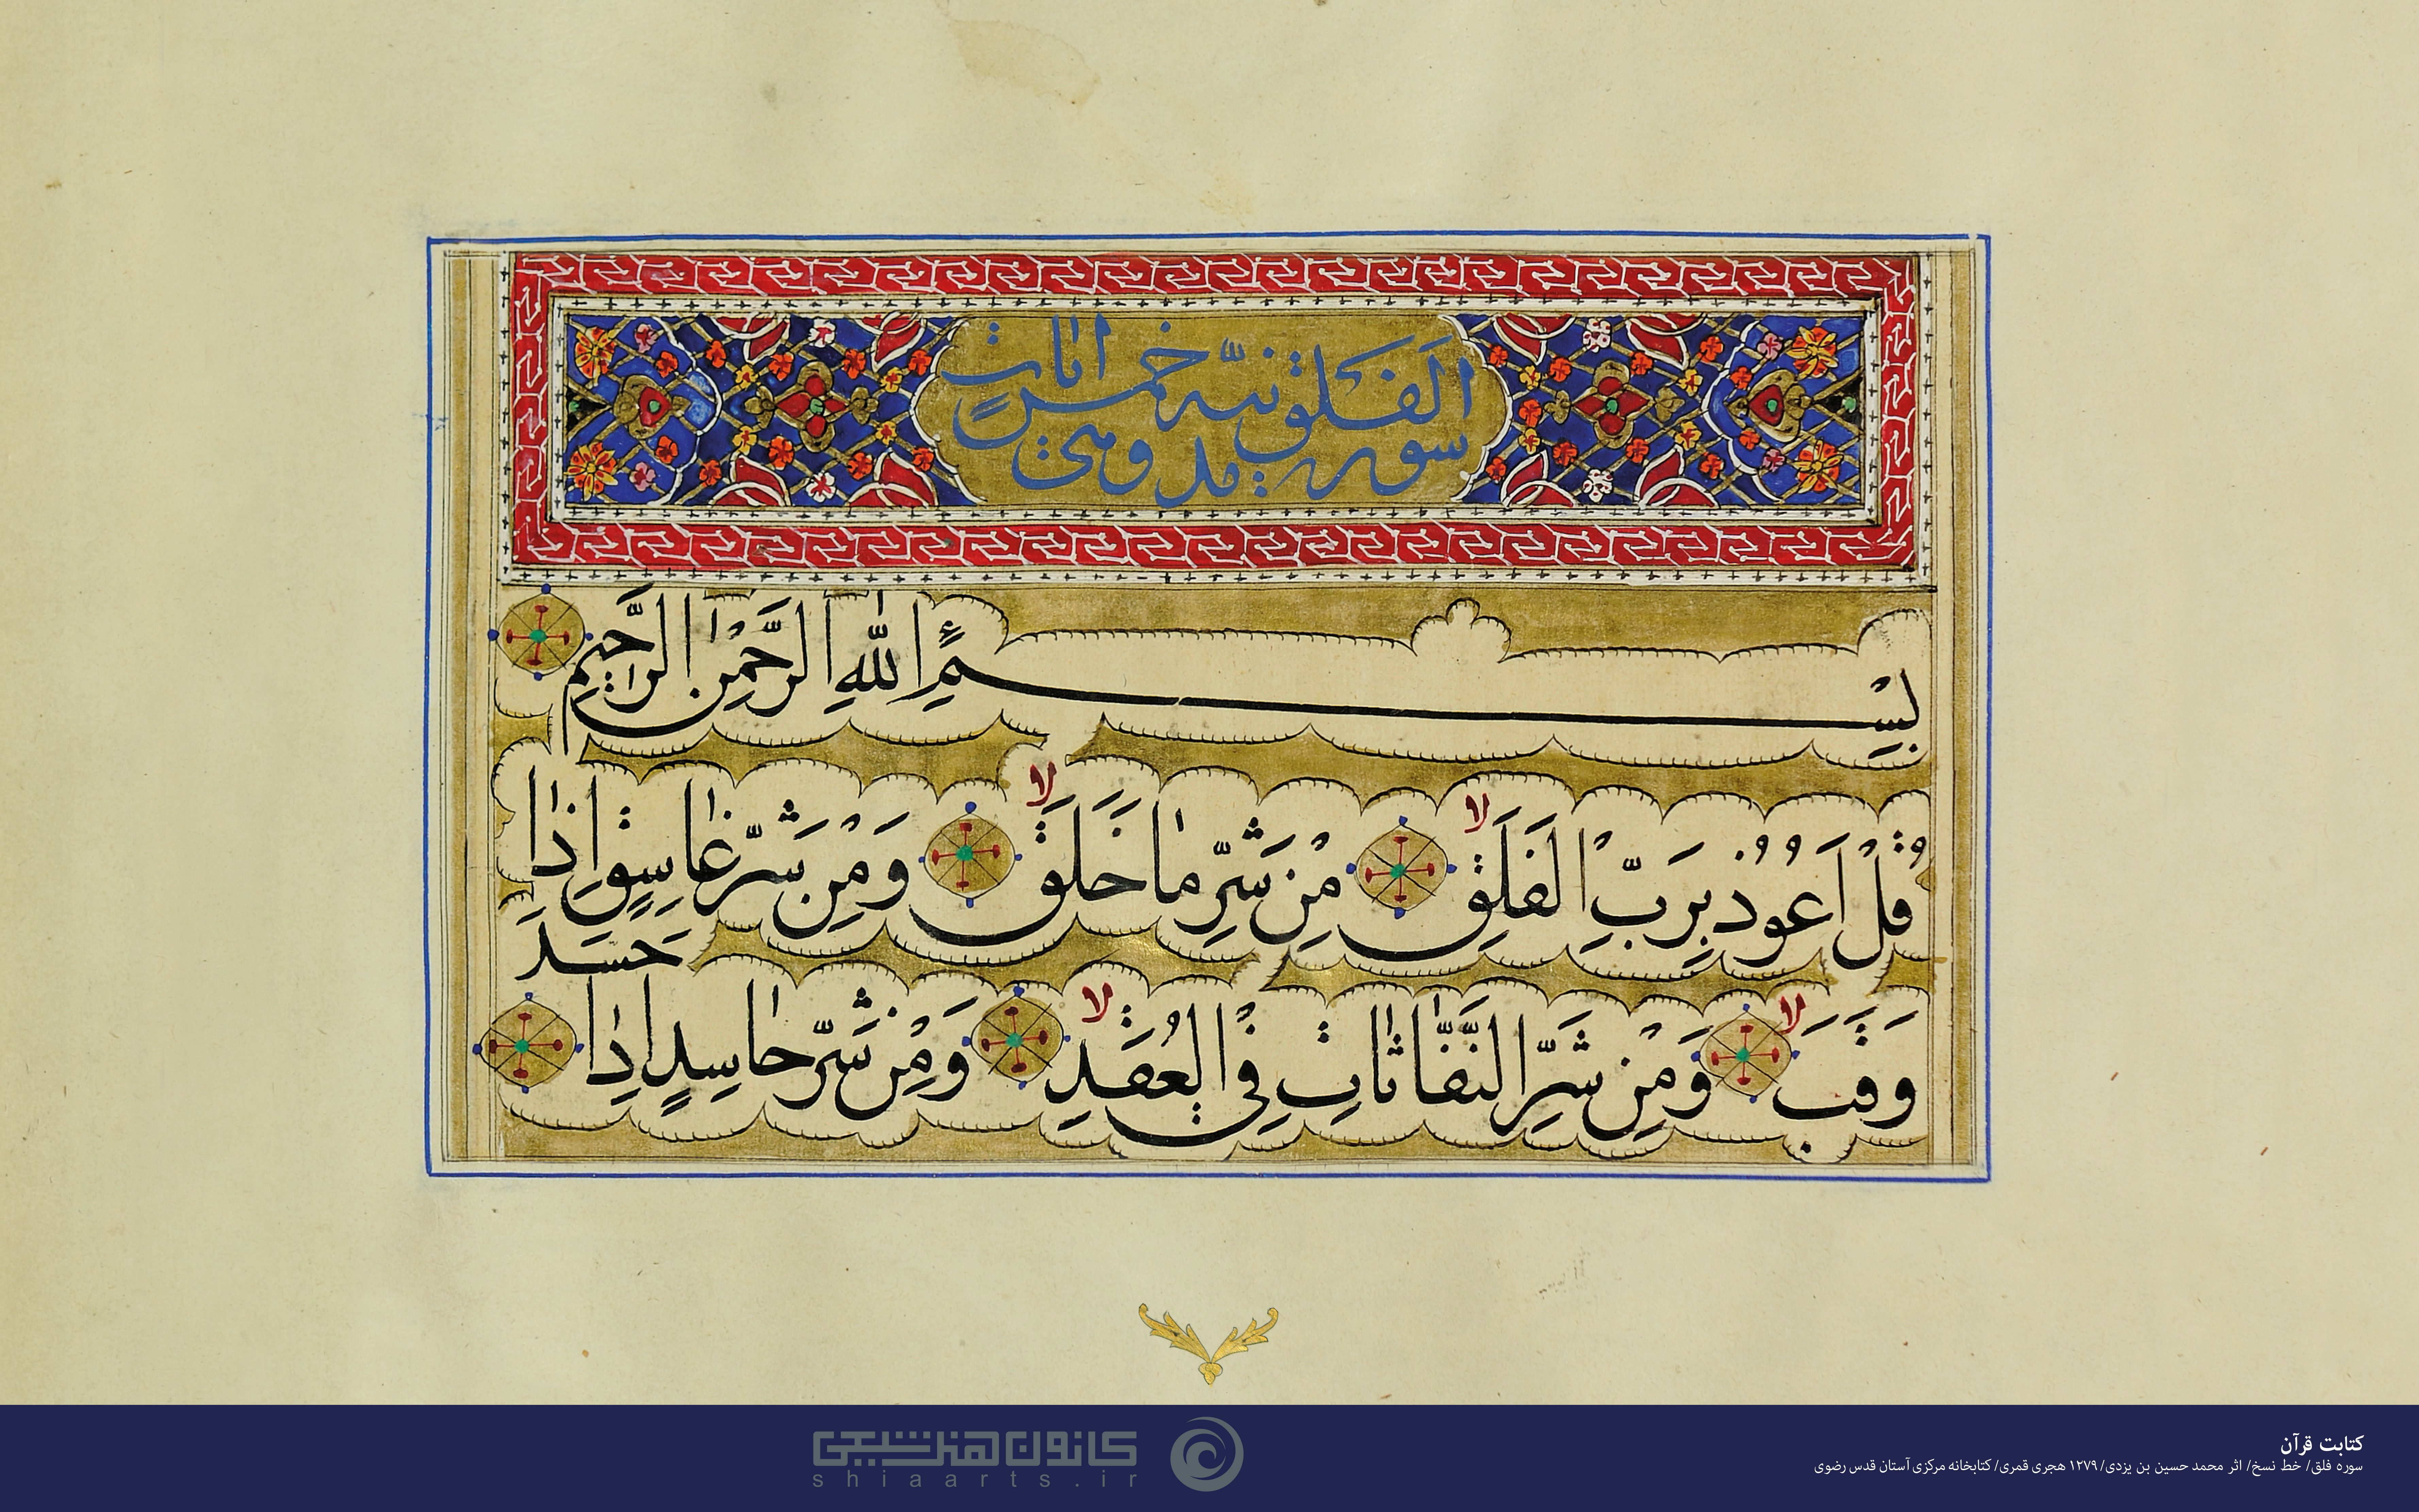 سورة الفلق مدنیّة وهی خمسٍ ایات
بِسْمِ اللّٰهِ الرَّحْمٰنِ الرَّحیٖمِ
قُلْ اَعُوذُ بِرَبِّ الْفَلَقِ لا مِنْ شَرِّ مٰا خَلَقَ لا وَمِنْ شَرِّ غٰاسِقٍ اِذٰا
وَقَبَ لا وَمِنْ شَرِّ النَّفّٰاثٰاتِ فِی الْعُقَدِ لا وَمِنْ شَرِّ حٰاسِدٍ اِذٰا
حَسَدَ
کتابت قرآن
سوره فلق/ خط نسخ/ اثر محمد حسین بن یزدی/ ۱۲۷۹ هجری قمری/ کتابخانه مرکزی آستان قدس رضوی
کانون هنر شیعی
shiaarts.ir